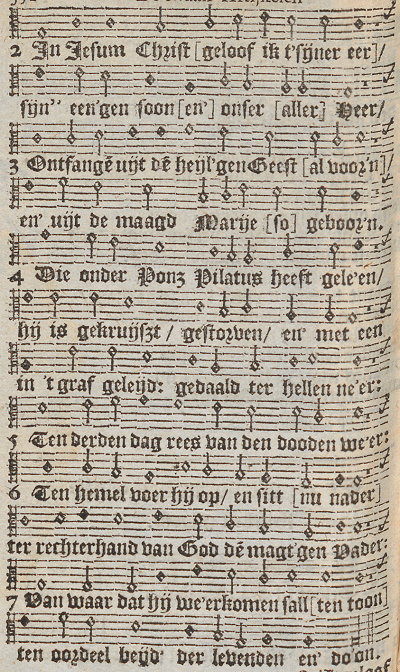 2 In Jesum Christ [geloof ik t'sijner eer]/
sijn'' een'gen soon [en'] onser [aller] Heer/
3 Ontfangē uijt dē heijl'gen Geest [al voor'n]/
en' uijt de maagd Marije [so] geboor'n.
4 Die onder Ponz Pilatus heeft gele'en/
hij is gekruijszt / gestorven / en' met een
in 't graf geleijd: gedaald ter hellen ne'er:
5 Ten derden dag rees van den dooden we'er:
6 Ten hemel voer hij op / en sitt [nu nader]
ter rechterhand van God dē magt'gen Vader:
7 Van waar dat hij we'erkomen sall [ten toon]
ten oordeel beijd' der levenden en' do'on.